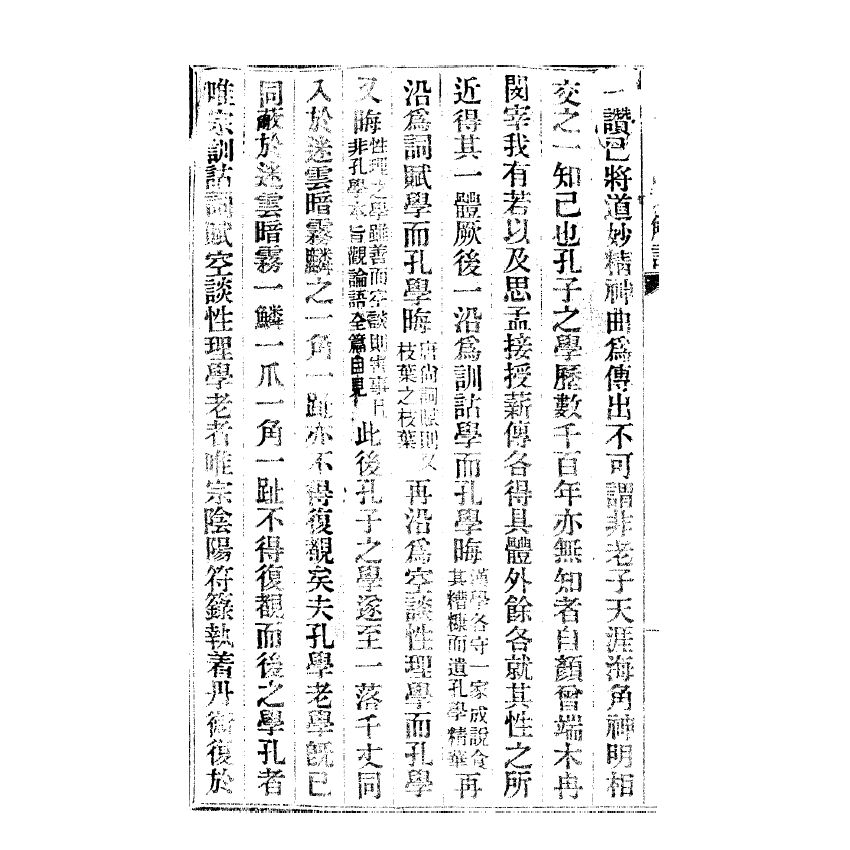 一讚已將道妙精神曲爲傳出不可謂非老子天涯海角神明相
交之一知己也孔子之學歷數千百年亦無知者自顏曾端木冉
閔宰我有若以及思孟接授薪傳各得具體外餘各就其性之所
近得其一體厥後一沿爲訓詁學而孔學晦漢學各守一家成說食其糟糠而遺孔學精華再
沿爲詞賦學而孔學晦唐尚詞賦則又枝葉之枝葉再沿爲空談性理學而孔學
又晦性理之學雖善而空談則害事且非孔學本旨觀論語全篇自見此後孔子之學遂至一落千丈同
入於迷雲暗霧麟之一角一趾亦不得復覩矣夫孔學老學旣已
同蔽於迷雲暗霧一鱗一爪一角一趾不得復覩而後之學孔者
唯宗訓詁詞賦空談性理學老者唯宗陰陽符籙執着丹術復於